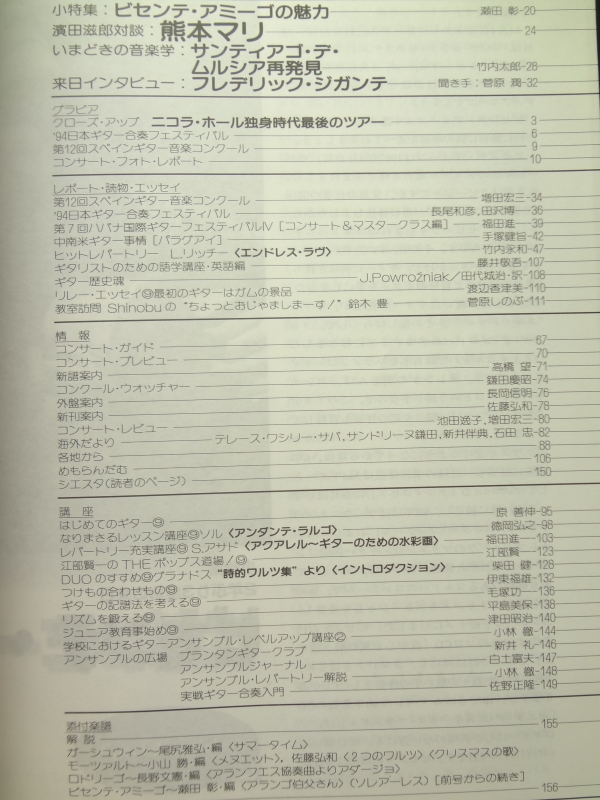 小特集：ビセンテ・アミーゴの魅力 瀬田 彰-20
濱田滋郎対談：熊本マリ 24
いまどきの音楽学：サンティアゴ・デ・
ムルシア再発見 竹内太郎-28
来日インタビュー：フレデリック・ジガンテ 聞き手：菅原 潤-32
グラビア
クローズ・アップ ニコラ・ホール独身時代最後のツアー 3
'94日本ギター合奏フェスティバル 6
第12回スペインギター音楽コンクール 9
コンサート・フォト・レポート 10
レポート・読物・エッセイ
第12回スペインギター音楽コンクール 増田宏三-34
'94日本ギター合奏フェスティバル 長尾和彦，田沢博一 36
第7回ハバナ国際ギターフェスティバルIV［コンサート＆マスタークラス編］ 福田進一 39
中南米ギター事情［パラグアイ］ 手塚健旨-42
ヒットレパートリー L.リッチー〈エンドレス・ラヴ〉 竹内永和-47
ギタリストのための語学講座・英語編 藤井敬吾-107
ギター歴史魂 J.Powroźniak／田代城治・訳-108
リレー・エッセイ⑨最初のギターはガムの景品 渡辺香津美-110
教室訪問 Shinobuの“ちょっとおじゃましまーす！”鈴木 豊 菅原しのぶ-111
情 報
コンサート・ガイド 67
コンサート・プレビュー 70
新譜案内 高橋 望-71
コンクール・ウォッチャー 鎌田慶昭-74
外盤案内 長岡信明-76
新刊案内 佐藤弘和-78
コンサート・レビュー 池田逸子，増田宏三-80
海外だより テレース・ワシリー・サバ，サンドリーヌ鎌田，新井伴典，石田 忠-82
各地から 88
めもらんだむ 106
シエスタ（読者のページ） 150
講 座
はじめてのギター⑨ 原 善伸-95
なりまさるレッスン講座⑨ソル〈アンダンテ・ラルゴ〉 徳岡弘之-98
レパートリー充実講座⑨S.アサド〈アクアレル～ギターのための水彩画〉 福田進一-103
江部賢一のTHEポップス道場！⑨ 江部賢一-123
DUOのすすめ⑨グラナドス“詩的ワルツ集”より〈イントロダクション〉 柴田 健-128
つけもの合わせもの⑨ 伊東福雄-132
ギターの記譜法を考える⑨ 毛塚功一-136
リズムを鍛える⑨ 平島美保-138
ジュニア教育事始め⑨ 津田昭治-140
学校におけるギターアンサンブル・レベルアップ講座② 小林 徹-144
アンサンブルの広場 プランタンギタークラブ 新井 礼-146
アンサンブルジャーナル 白土富夫-147
アンサンブル・レパートリー解説 小林 徹-148
実戦ギター合奏入門 佐野正隆-149
添付楽譜 155
解 説
ガーシュウィン～尾尻雅弘・編〈サマータイム〉
モーツァルト～小山 勝・編〈メヌエット〉，佐藤弘和〈2つのワルツ〉〈クリスマスの歌〉
ロドリーゴ～長野文憲・編〈アランフエス協奏曲よりアダージョ〉
ビセンテ・アミーゴ～瀬田 彰・編〈アランゴ伯父さん〉（ソレアーレス）［前号からの続き］ 156